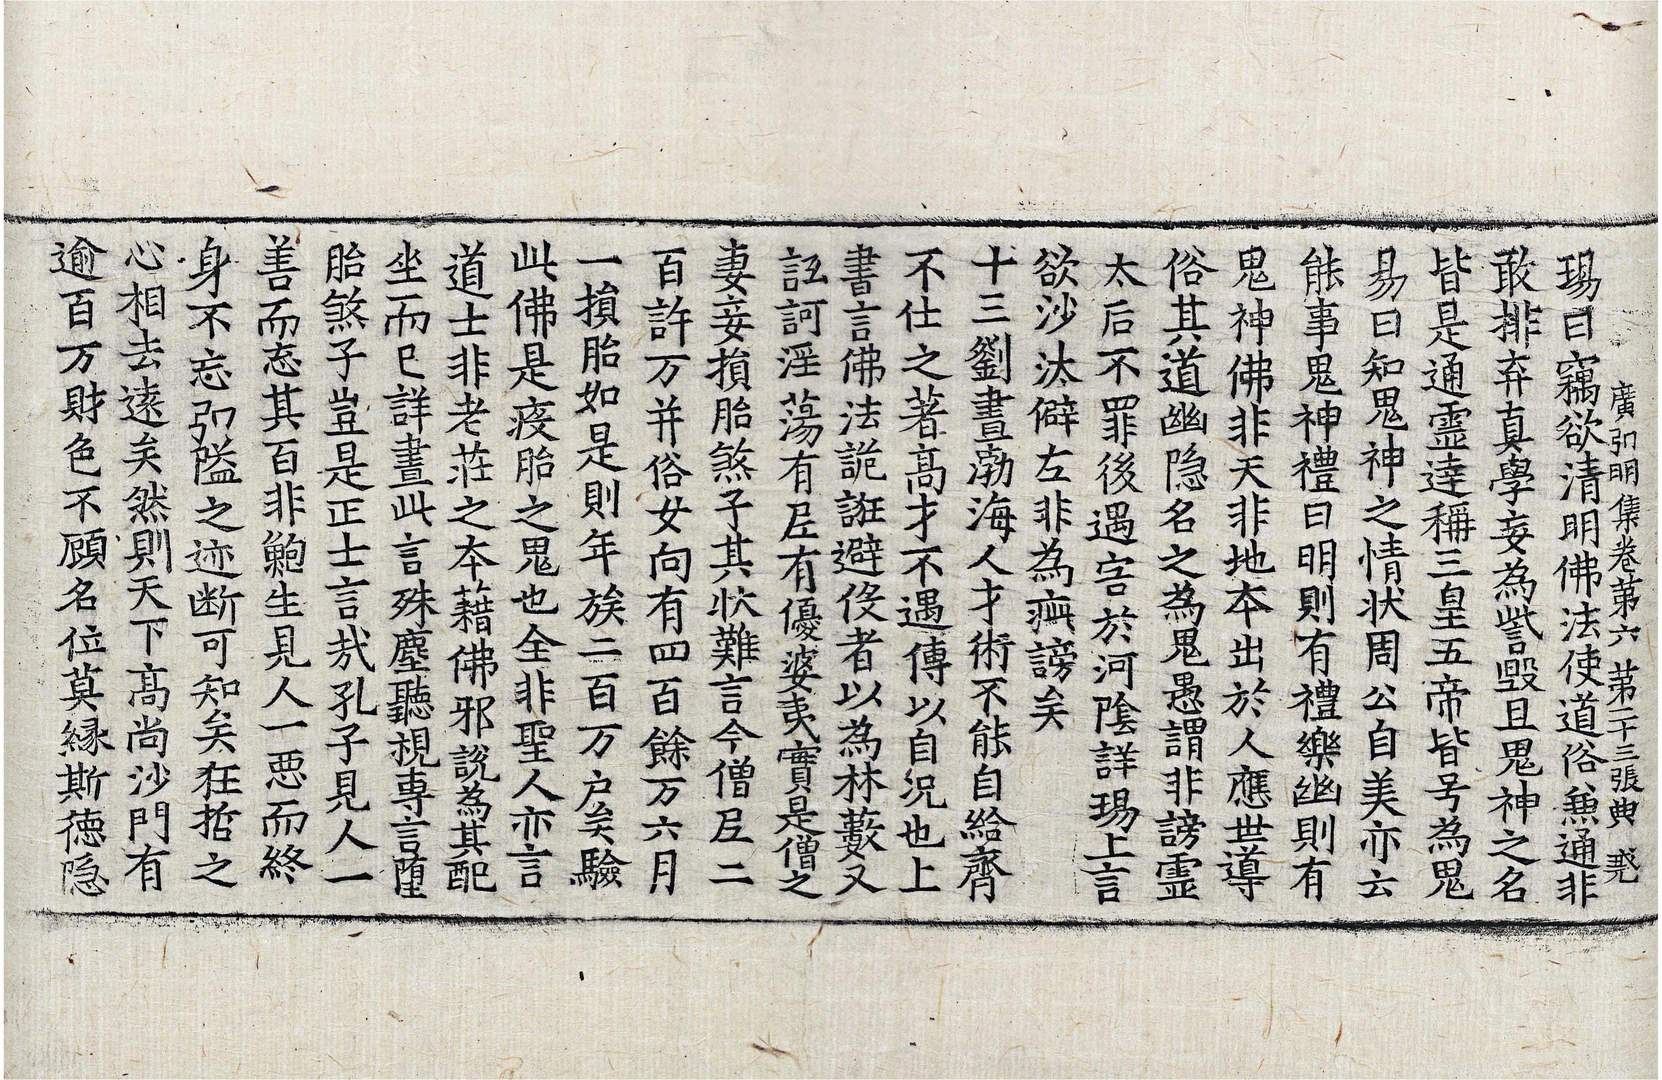 廣弘明集卷第六 第二十三張 典
瑒曰竊欲清明佛法使道俗兼通非
敢排弃真學妄為訾毀且鬼神之名
皆是通靈達稱三皇五帝皆号為鬼
易曰知鬼神之情状周公自美亦云
能事鬼神禮曰明則有禮樂幽則有
鬼神佛非天非地本出於人應世導
俗其道幽隐名之為鬼愚謂非謗靈
太后不罪後遇害於河陰詳瑒上言
欲沙汰僻左非為疵謗矣
十三劉晝渤海人才術不能自給齊
不仕之著高才不遇傳以自况也上
書言佛法詭誑避役者以為林藪又
詆訶淫蕩有尼有優婆夷實是僧之
妻妾損胎煞子其状難言今僧尼二
百許万并俗女向有四百餘万六月
一損胎如是則年族二百万户矣驗
此佛是疫胎之鬼也全非聖人亦言
道士非老莊之本藉佛邪說為其配
坐而已詳晝此言殊塵聽視專言墮
胎煞子豈是正士言哉孔子見人一
善而忘其百非鮑生見人一惡而終
身不忘弘隘之迹断可知矣狂哲之
心相去遠矣然則天下高尚沙門有
逾百万財色不顧名位莫縁斯德隐